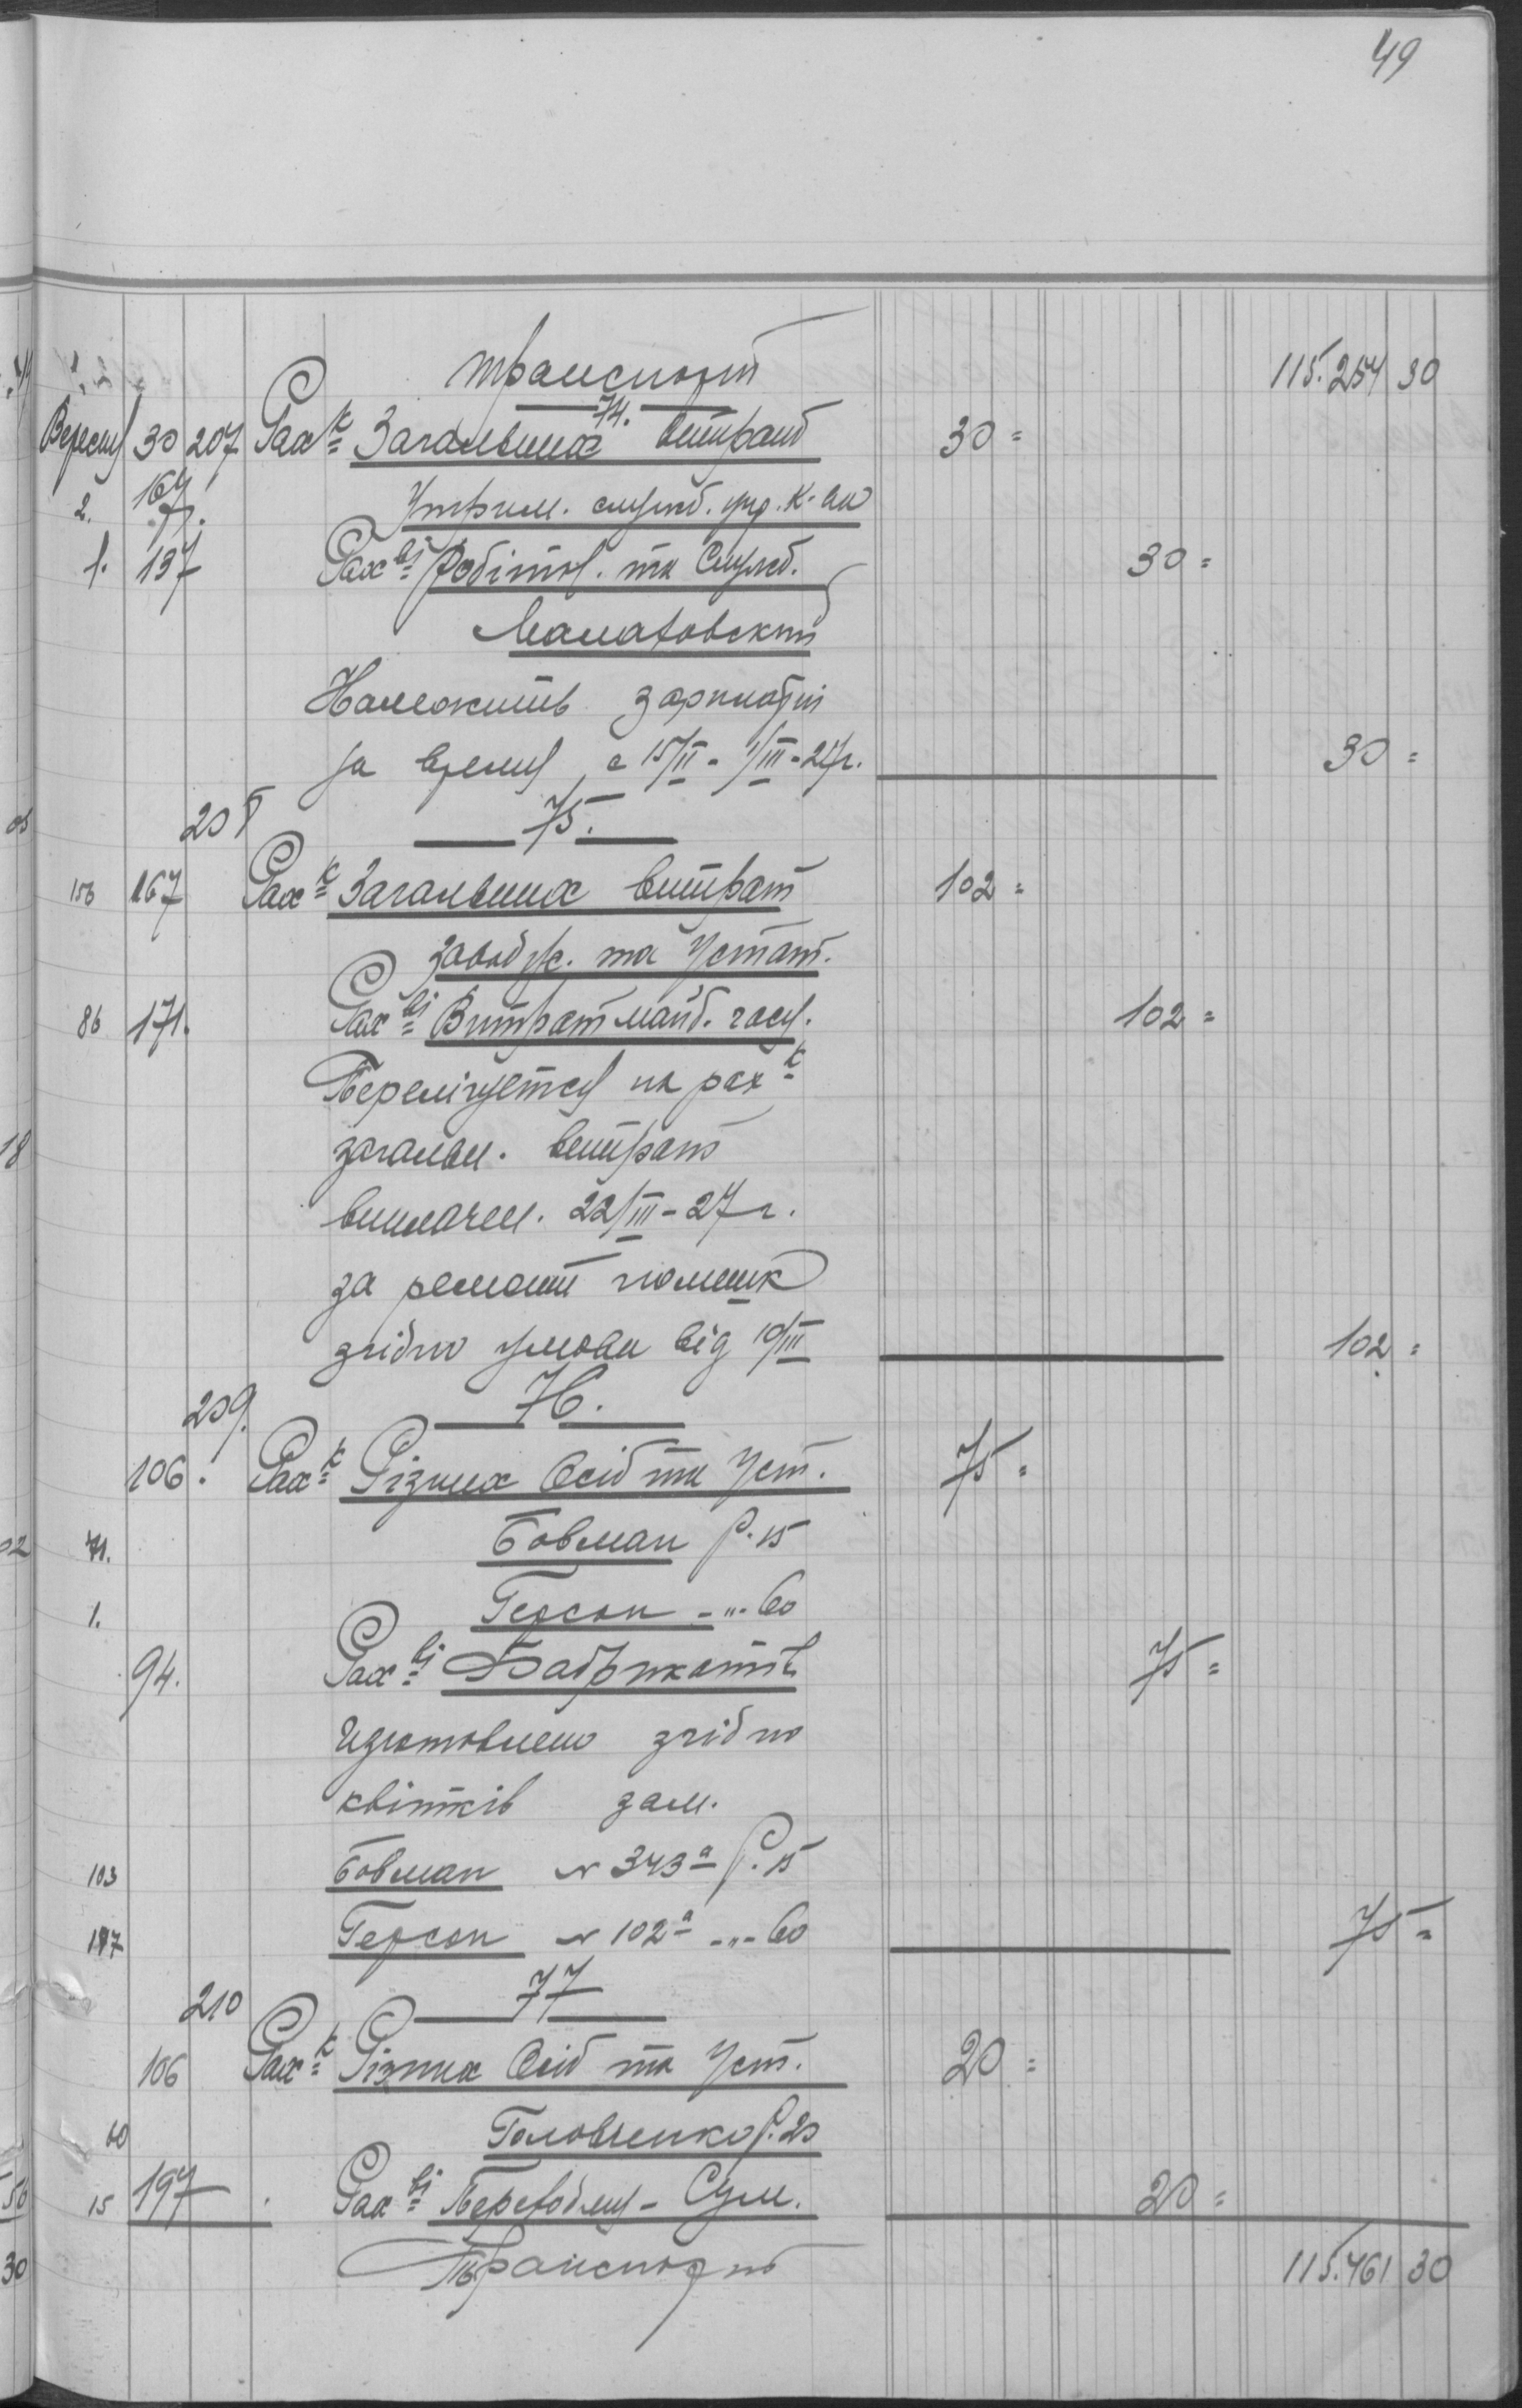 49
Транспорт 115.254 30
74.
Вересня 30 207 Рах-к Загальних витрат 30=
2. 167. Утрим. служб. упр. К-ви
1. 197 Рах-ві Робітн. та Служб. 30=
Маматовский
Належить зарплатні
за время с 15/II - 1/III - 27г. 30=
208 75.
156 167 Рах-к Загальних витрат 102=
завод. та Устат.
86 171. Рах-ві Витрат майб. часу. 102=
Перелічуется на рах-к
загальн. витрат
виплачен. 22/III - 27г.
за ремонт
згідно умови від 10/III 102=
209. 76.
106. Рах-к Різних Осіб та Уст. 75=
71. Бовман Р. 15
1. Герсон -"- 60
94. Рах-ві Фабрикатів 75=
Изготовлено згідно
квітків зам.
103 Бовман № 343а Р. 15
197 Герсон № 102а -"- 60 75=
210 77
106 Рах-к Різних Осіб та Уст. 20=
60 Головченко Р. 20
15 197 Рах-ві Переводних Сум. 20=
Транспорт 115.461 30